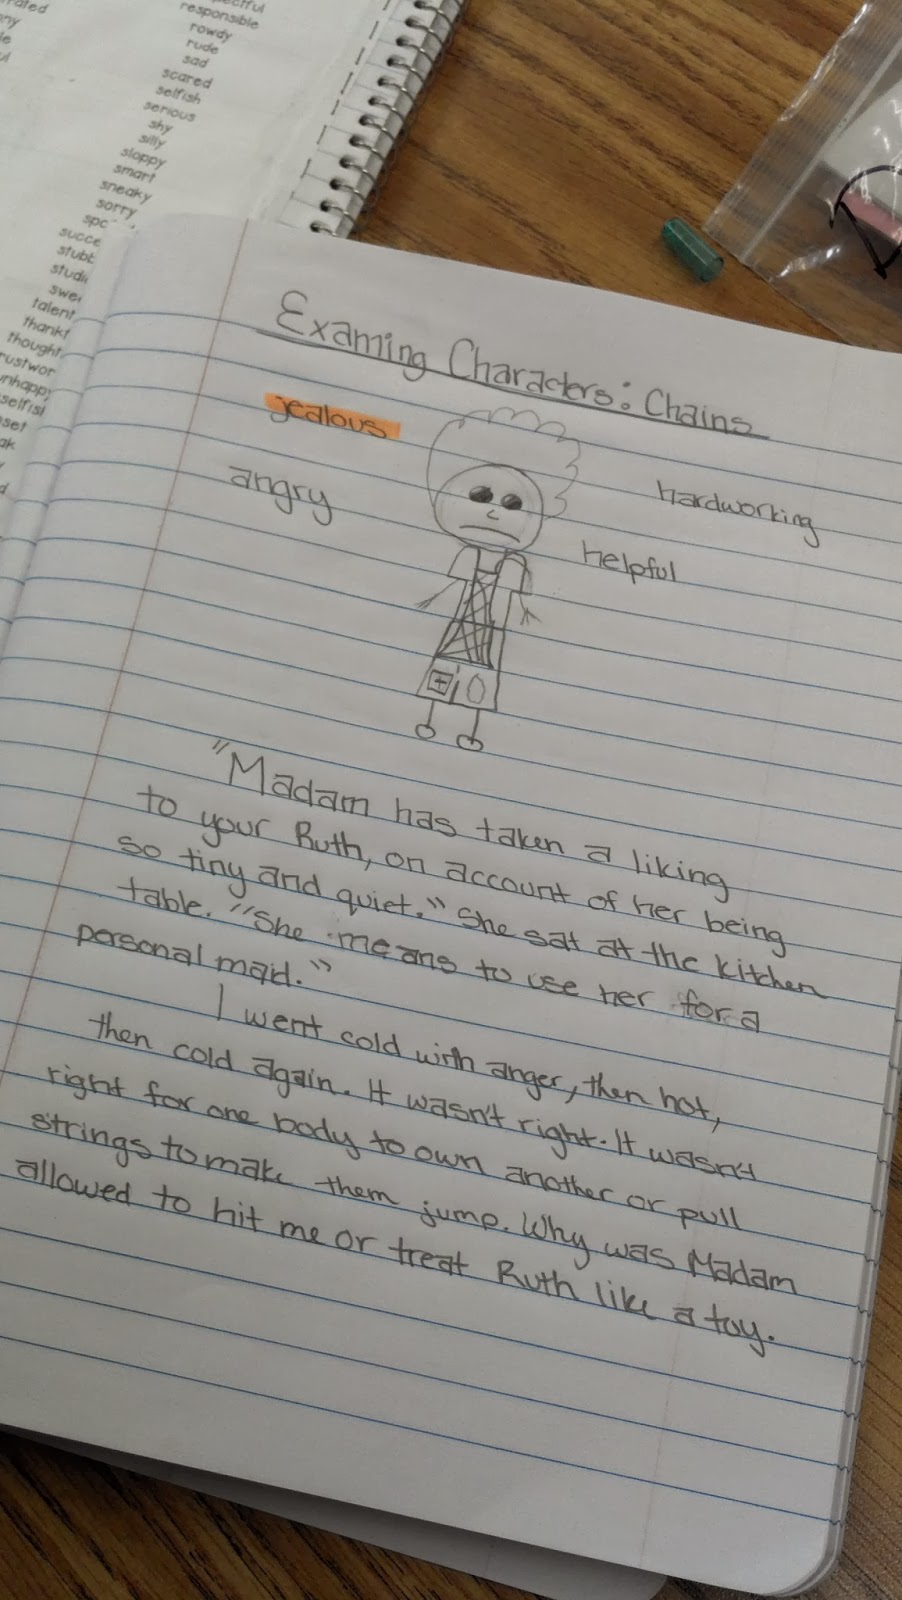 responsible
rowdy
rude
sad
scared
selfish
serious
shy
silly
sloppy
smart
sneaky
sorry
Examing Characters: Chains
jealous
angry
hardworking
helpful
"Madam has taken a liking
to your Ruth, on account of her being
so tiny and quiet." She sat at the kitchen
table. "She means to use her for a
personal maid."
I went cold with anger, then hot,
then cold again. It wasn't right. It wasn't
right for one body to own another or pull
strings to make them jump. Why was Madam
allowed to hit me or treat Ruth like a toy.